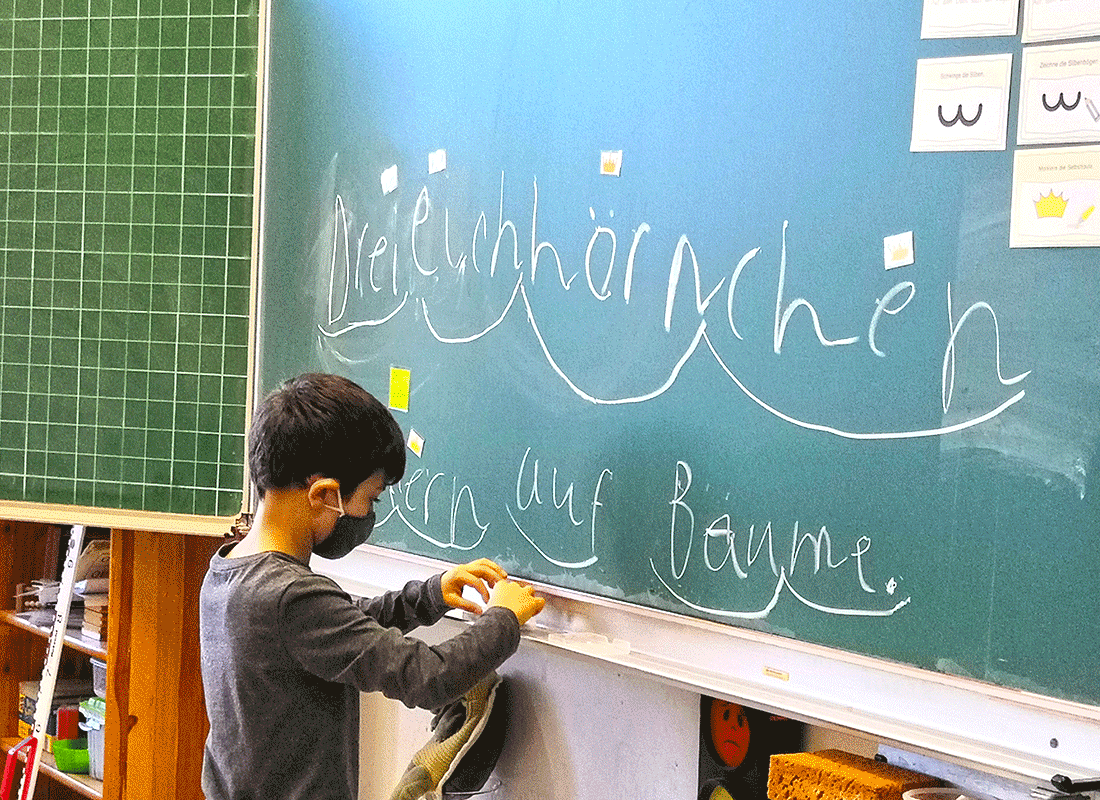 Schwinge die Silben.
Zeichne die Silbenbögen.
Markiere die Selbstlaute.
Drei eichhörnchen
ern auf Bäume.